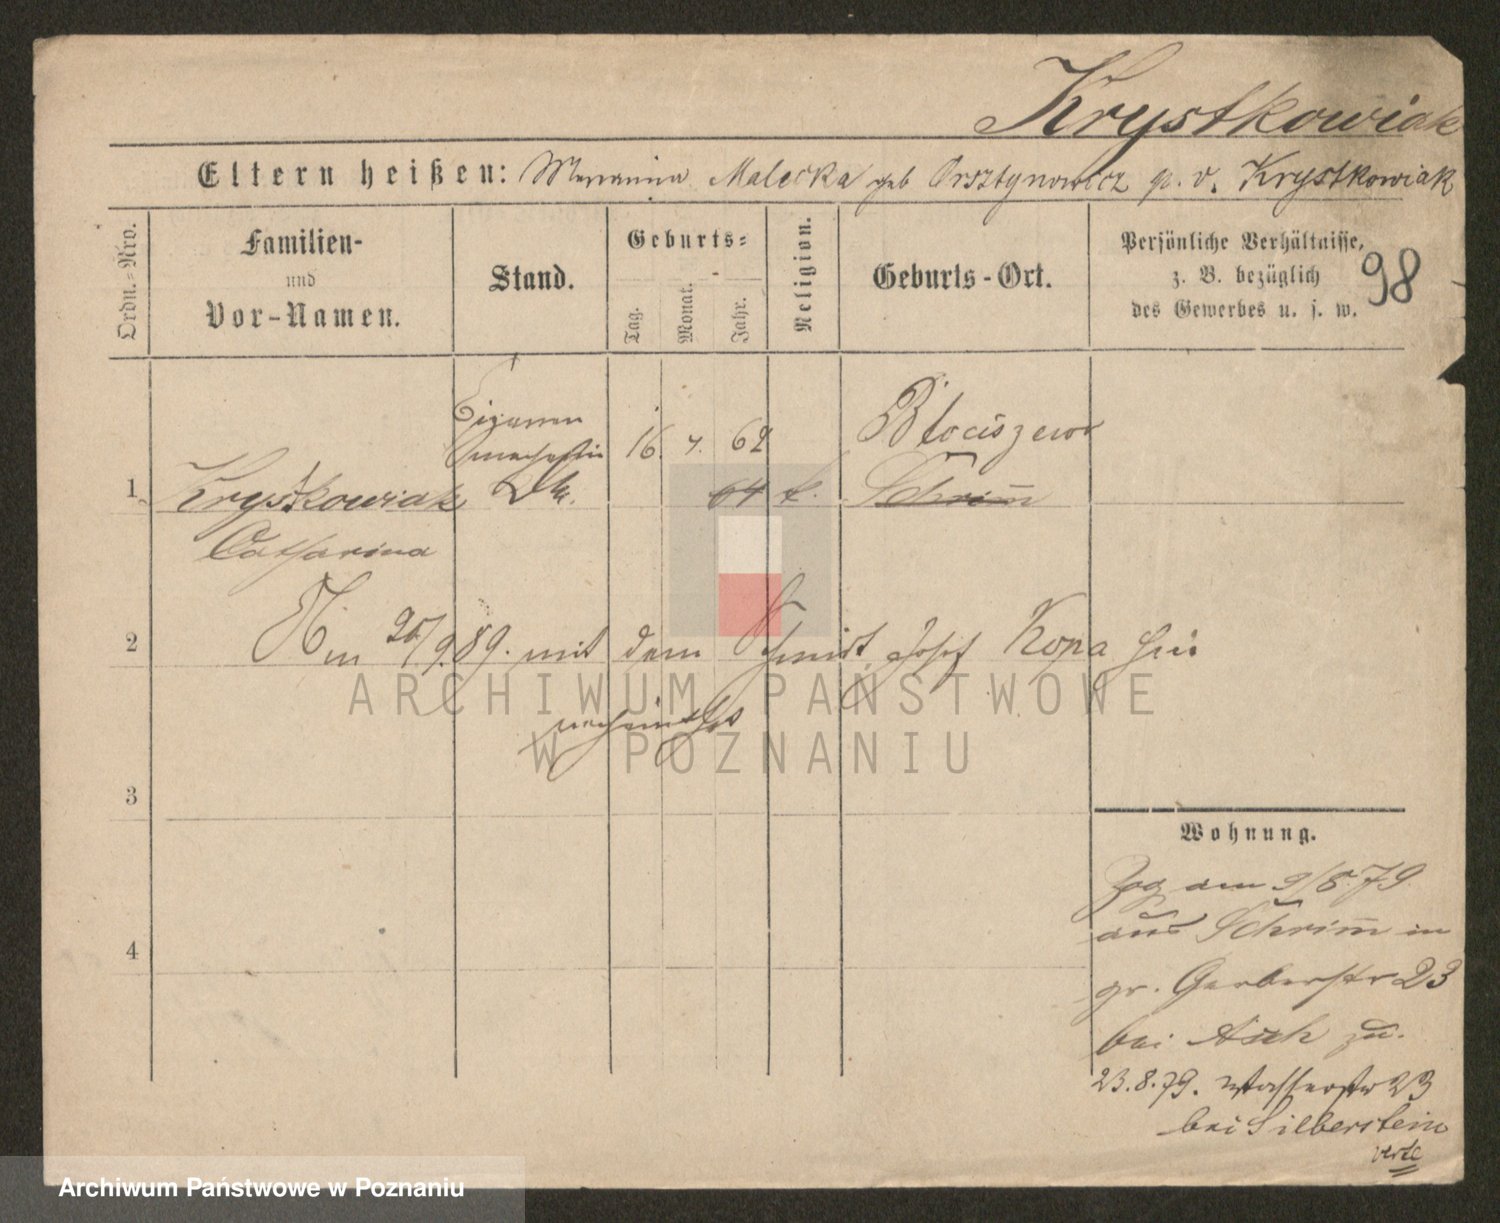 Krystkowiak
Eltern heißen: Marianna Malecka geb Orsztynowicz p. v. Krystkowiak
Ordn.=Nro.
Familien-
und
Vor-Namen.
Stand.
Geburts=
Tag.
Monat.
Jahr.
Religion.
Geburts-Ort.
Persönliche Verhältnisse,
z. B. bezüglich
des Gewerbes u. s. w.
98
1
Krystkowiak
Catharina
Cigarren
16. 62
64 k.
Błociszewo
Schrim̄
2
25/9.89. mit dem Schmidt Josef Kopa hier
verheirathet
3
4
Wohnung.
Zog am 9/8.79
aus Schrim̄ in
gr. Gerberstr 23
bei Asch zu.
23.8.79. Wasserstr 23
bei Silberstein
verte
ARCHIWUM PAŃSTWOWE
W POZNANIU
Archiwum Państwowe w Poznaniu